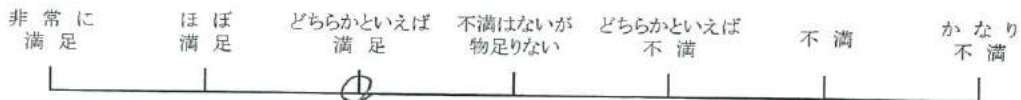 非常に
満足
ほぼ
満足
どちらかといえば
満足
不満はないが
物足りない
どちらかといえば
不満
不満
かなり
不満